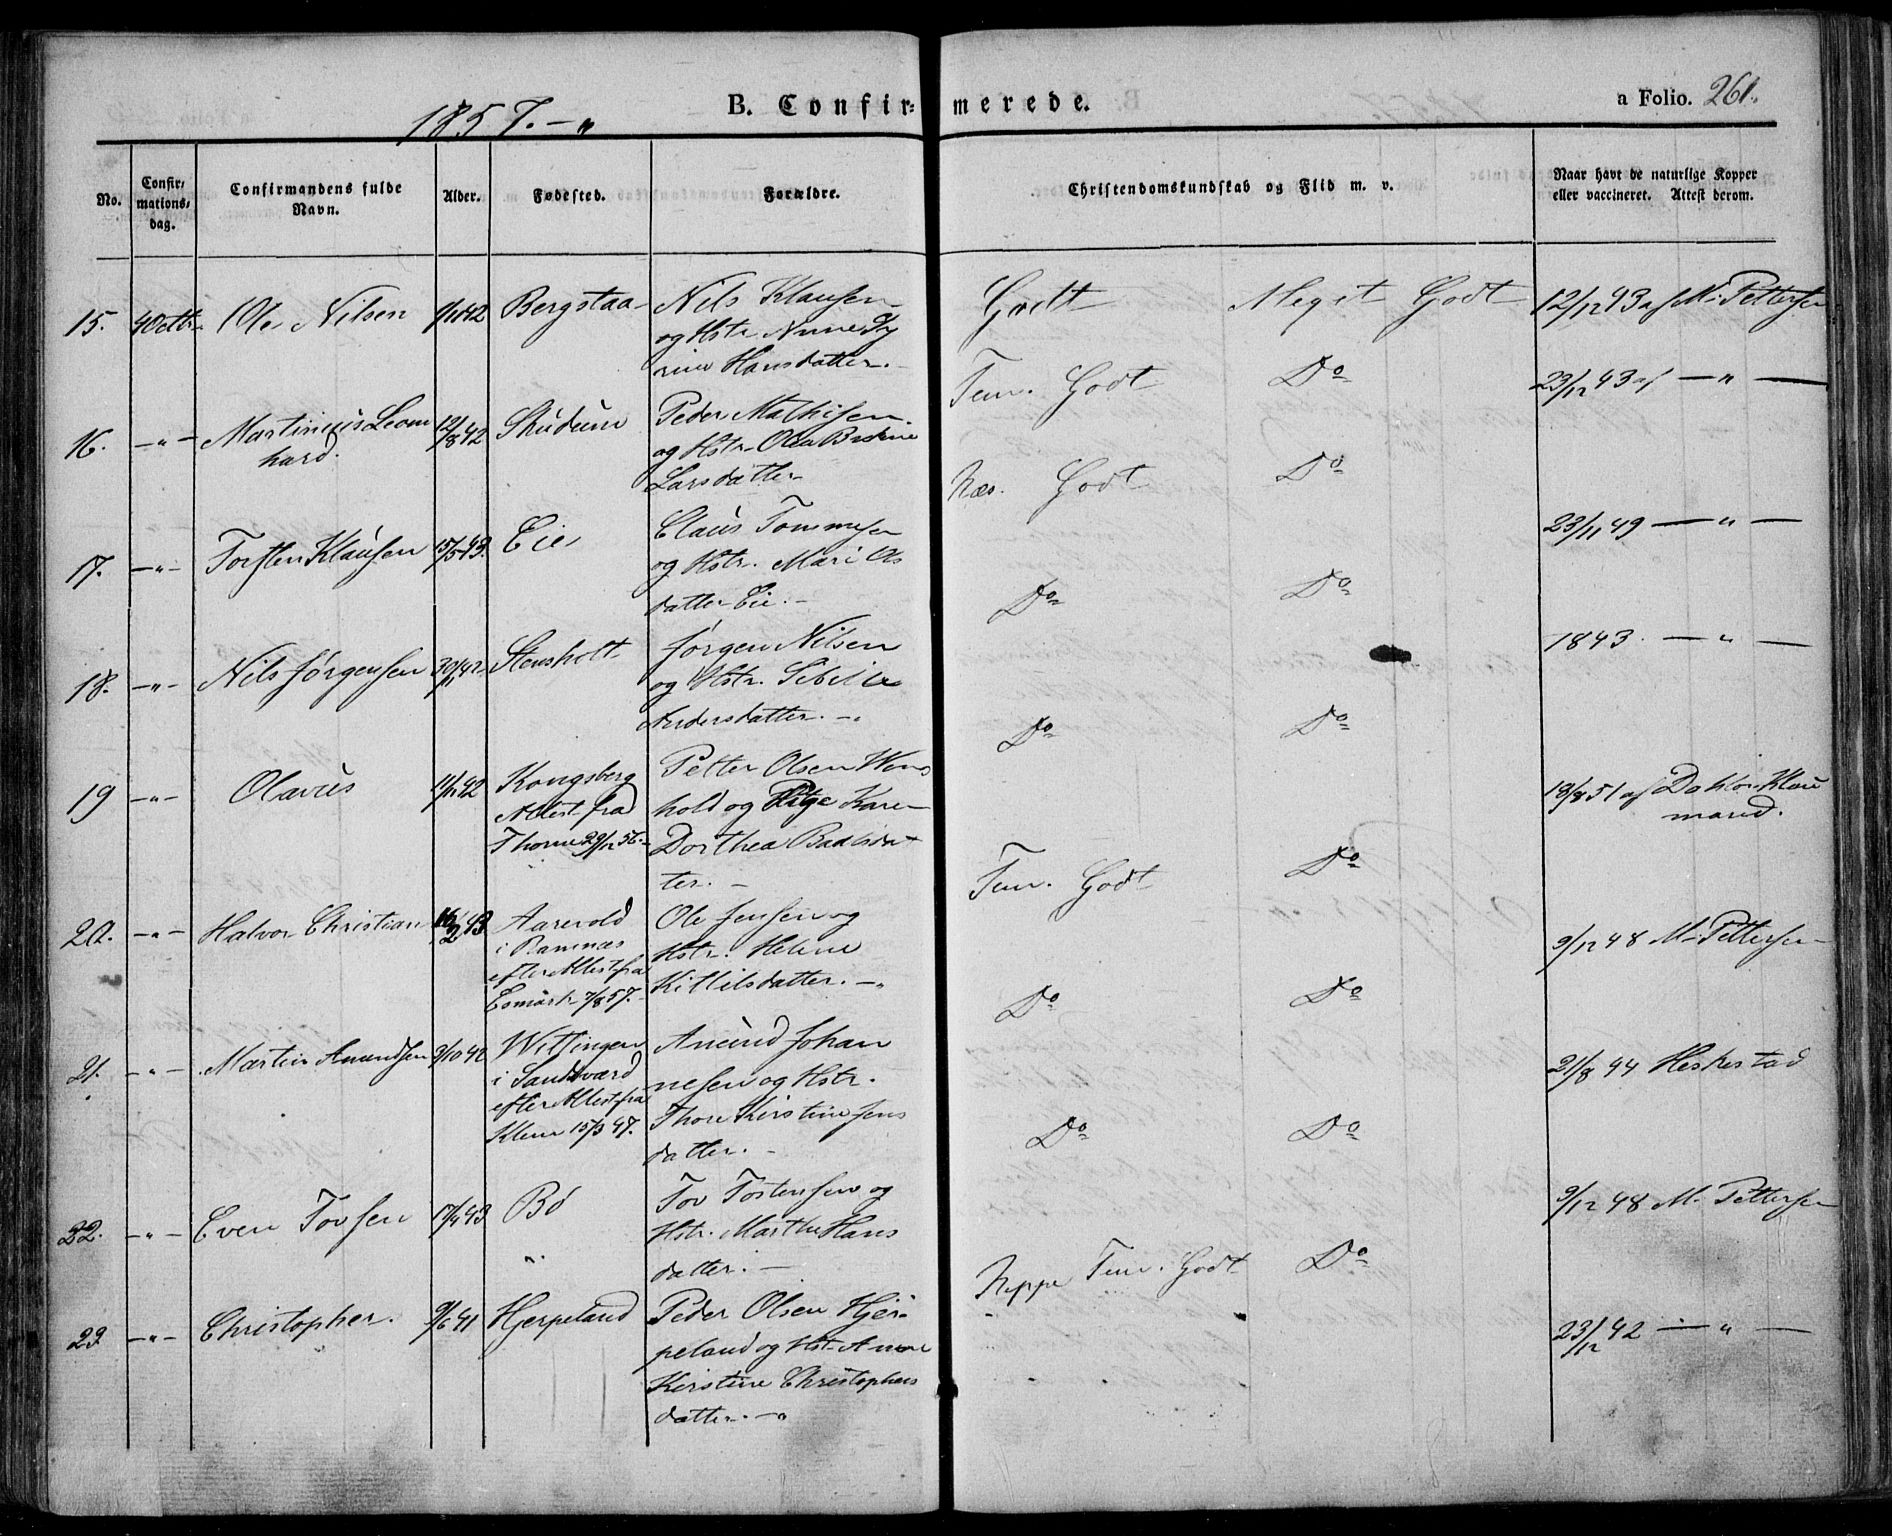 1857. —„
B. Confirmerede.
a Folio. 261.
No.
Confir-
mations-
dag.
Confirmandens fulde
Navn.
Alder.
Fødested.
Forældre.
Christendomskundskab og Flid m. v.
Naar havt de naturlige Kopper
eller vaccineret. Attest derom.
15. 4 Octbr. Ole Nilsen Bergstaa Nils Klausen
og Hstr. Anne
Hansdatter.
Godt Meget Godt 12/12 43 af M. Pettersen
16. —„— Martinius Leon
hard.
12/8 42 Skudum Peder Mathisen
og Hstr. Olea
Larsdatter
Tem. Godt Do 23/12 43 af —„—
17. —„— Torsten Klausen 15/5 43. Eie Claus Tommesen
og Hstr. Mari Ols
datter Eie. —
Næs. Godt Do 23/11 49 —„—
18. —„— Nils Jørgensen 30/11 42 Stensholt Jørgen Nilsen
og Hstr. Sibille
Andersdatter. —„
Do Do 1843. —„—
19 —„— Olavus Kongsberg
Attest fra
Petter Olsen
hold og Pige Karen
Dorthea
ter. —
Do Do 18/8 51 af Doktor Klou
mand.
20. —„— Halvor Christian Aarevold
i Ramnæs
efter Attest fra
Esmark 7/8 57.
Ole Jensen og
Hstr. Helene
Kittilsdatter. —„
Tem. Godt Do 9/12 48 M. Pettersen
21. —„— Martin Amundsen 9/10 42 Wittingen
i Sandsværd
efter Attest fra
Klem 15/3 47.
Amund Johan
nesen og Hstr.
Thore Kirstine Jens
datter. —
Do Do 21/8 44 Heskestad
22. —„— Even Tovsen 17/4 43 Bø
„.
Tov Torstensen og
Hstr. Marthe Hans
datter. —
Do Do 9/12 48 M. Pettersen
23. —„— Christopher. 9/6 41 Hjerpeland Peder Olsen Hjer-
peland og Hst. Anne
Kirstine Christophers
datter. —„
Neppe Tem. Godt Do 23/12 42 —„—